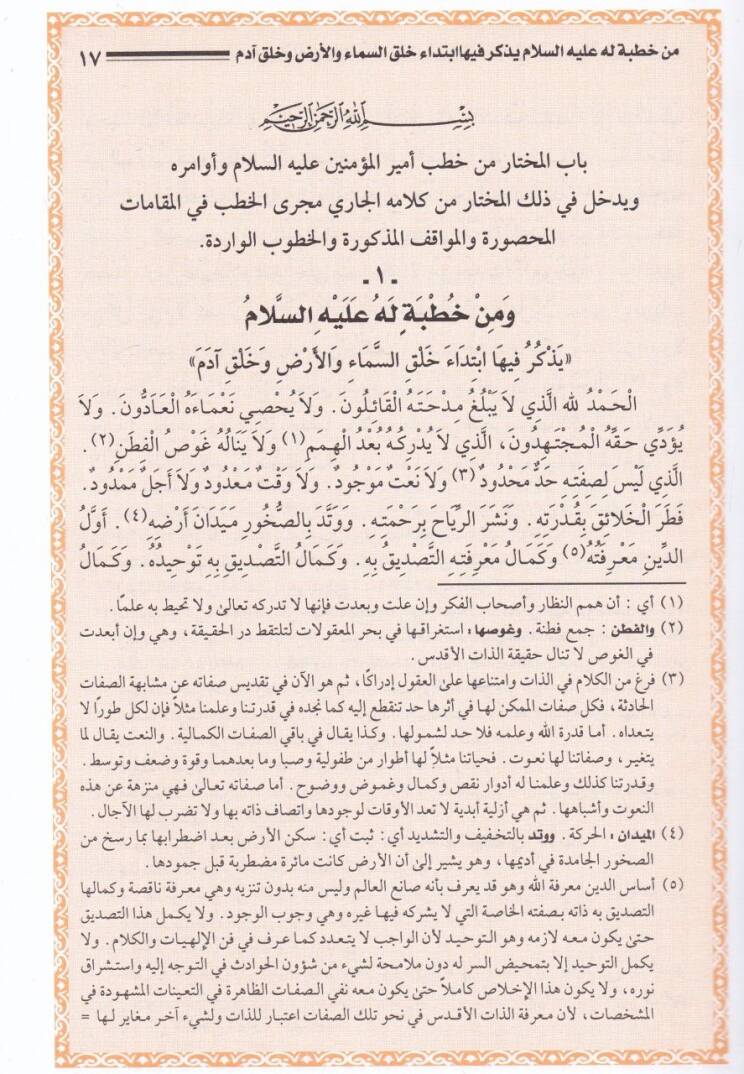 من خطبة له عليه السلام يذكر فيها ابتداء خلق السماء والأرض وخلق آدم ١٧
بسم الله الرحمن الرحيم
باب المختار من خطب أمير المؤمنين عليه السلام وأوامره
ويدخل في ذلك المختار من كلامه الجاري مجرى الخطب في المقامات
المحصورة والمواقف المذكورة والخطوب الواردة.
ـ ١ ـ
وَمِنْ خُطْبَةٍ لَهُ عَلَيْهِ السَّلَامُ
«يَذْكُرُ فِيهَا ابْتِدَاءَ خَلْقِ السَّمَاءِ وَالْأَرْضِ وَخَلْقِ آدَمَ»
الْحَمْدُ لله الَّذِي لَا يَبْلُغُ مِدْحَتَهُ الْقَائِلُونَ. وَلَا يُحْصِي نَعْمَاءَهُ الْعَادُّونَ. وَلَا
يُؤَدِّي حَقَّهُ الْمُجْتَهِدُونَ، الَّذِي لَا يُدْرِكُهُ بُعْدُ الْهِمَمِ(١) وَلَا يَنَالُهُ غَوْصُ الْفِطَنِ(٢).
الَّذِي لَيْسَ لِصِفَتِهِ حَدٌّ مَحْدُودٌ(٣) وَلَا نَعْتٌ مَوْجُودٌ. وَلَا وَقْتٌ مَعْدُودٌ وَلَا أَجَلٌ مَمْدُودٌ.
فَطَرَ الْخَلَائِقَ بِقُدْرَتِهِ. وَنَشَرَ الرِّيَاحَ بِرَحْمَتِهِ. وَوَتَّدَ بِالصُّخُورِ مَيَدَانَ أَرْضِهِ(٤). أَوَّلُ
الدِّينِ مَعْرِفَتُهُ(٥) وَكَمَالُ مَعْرِفَتِهِ التَّصْدِيقُ بِهِ. وَكَمَالُ التَّصْدِيقِ بِهِ تَوْحِيدُهُ. وَكَمَالُ
(١) أي : أن همم النظار وأصحاب الفكر وإن علت وبعدت فإنها لا تدركه تعالى ولا تحيط به علمًا.
(٢) والفطن : جمع فطنة. وغوصها: استغراقها في بحر المعقولات لتلتقط در الحقيقة، وهي وإن أبعدت
في الغوص لا تنال حقيقة الذات الأقدس.
(٣) فرغ من الكلام في الذات وامتناعها على العقول إدراكًا، ثم هو الآن في تقديس صفاته عن مشابهة الصفات
الحادثة، فكل صفات الممكن لها في أثرها حد تنقطع إليه كما نجده في قدرتنا وعلمنا مثلاً فإن لكل طورًا لا
يتعداه. أما قدرة الله وعلمه فلا حد لشمولها. وكذا يقال في باقي الصفات الكمالية. والنعت يقال لما
يتغير، وصفاتنا لها نعوت. فحياتنا مثلاً لها أطوار من طفولية وصبا وما بعدهما وقوة وضعف وتوسط.
وقدرتنا كذلك وعلمنا له أدوار نقص وكمال وغموض ووضوح. أما صفاته تعالى فهي منزهة عن هذه
النعوت وأشباهها. ثم هي أزلية أبدية لا تعد الأوقات لوجودها واتصاف ذاته بها ولا تضرب لها الآجال.
(٤) الميدان: الحركة. ووتد بالتخفيف والتشديد أي: ثبت أي: سكن الأرض بعد اضطرابها بما رسخ من
الصخور الجامدة في أديمها، وهو يشير إلى أن الأرض كانت مائرة مضطربة قبل جمودها.
(٥) أساس الدين معرفة الله وهو قد يعرف بأنه صانع العالم وليس منه بدون تنزيه وهي معرفة ناقصة وكمالها
التصديق به ذاته بصفته الخاصة التي لا يشركه فيها غيره وهي وجوب الوجود. ولا يكمل هذا التصديق
حتى يكون معه لازمه وهو التوحيد لأن الواجب لا يتعدد كما عرف في فن الإلهيات والكلام. ولا
يكمل التوحيد إلا بتمحيض السر له دون ملامحة لشيء من شؤون الحوادث في التوجه إليه واستشراق
نوره، ولا يكون هذا الإخلاص كاملاً حتى يكون معه نفي الصفات الظاهرة في التعينات المشهودة في
المشخصات، لأن معرفة الذات الأقدس في نحو تلك الصفات اعتبار للذات ولشيء آخر مغاير لها =